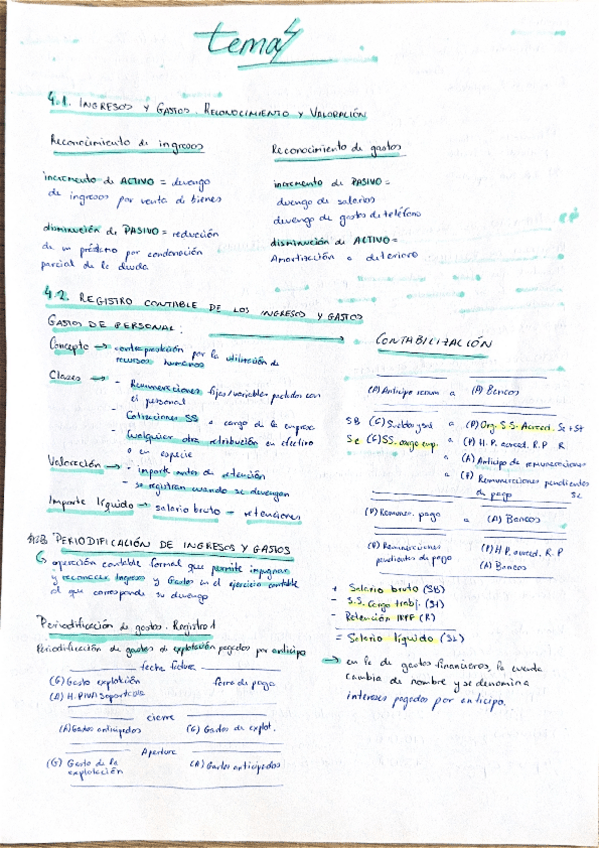 tema 4
4.1. INGRESOS Y GASTOS. RECONOCIMIENTO Y VALORACIÓN
Reconocimiento de ingresos
incremento de ACTIVO = devengo
de ingresos por venta de bienes
disminución de PASIVO = reducción
de un préstamo por condonación
parcial de la deuda.
Reconocimiento de gastos
incremento de PASIVO =
devengo de salarios
devengo de gastos de teléfono
disminución de ACTIVO =
Amortización o deterioro
4.2. REGISTRO CONTABLE DE LOS INGRESOS Y GASTOS
GASTOS DE PERSONAL:
Concepto → contraprestación por la utilización de
recursos humanos
Clases → - Remuneraciones fijas/variables pactadas con
el personal
- Cotizaciones SS a cargo de la empresa
- Cualquier otra retribución en efectivo
o en especie
Valoración → - importe antes de retención
- se registran cuando se devengan
Importe líquido → salario bruto - retenciones
PERIODIFICACIÓN DE INGRESOS Y GASTOS
operación contable formal que permite
y reconocer Ingresos y Gastos en el ejercicio contable
al que corresponde su devengo
Periodificación de gastos. Registro
Periodificación de gastos de explotación pagados por anticipo
fecha
(G) Gasto explotación forma de pago
(A) H.P. IVA soportado
cierre
(A) Gastos anticipados (G) Gastos de explot.
Apertura
(G) Gasto de la (A) Gastos anticipados
explotación
CONTABILIZACIÓN
(A) Anticipo remun a (A) Bancos
SB (G) Sueldo y sal a (P) Org. S.S. Acreed. Se + St
Se (G) SS. cargo emp. a (P) H.P. acreed. R.P R
a (A) Anticipo de remuneraciones
a (P) Remuneraciones pendientes
de pago SL
(P) Remuner. pago a (A) Bancos
(P) Remuneraciones (P) H.P. acreed. R.P
pendientes de pago (A) Bancos
+ Salario bruto (SB)
- S.S. cargo trabj. (St)
- Retención IRPF (R)
= Salario líquido (SL)
→ en la de gastos financieros, la cuenta
cambia de nombre y se denomina
intereses pagados por anticipo.